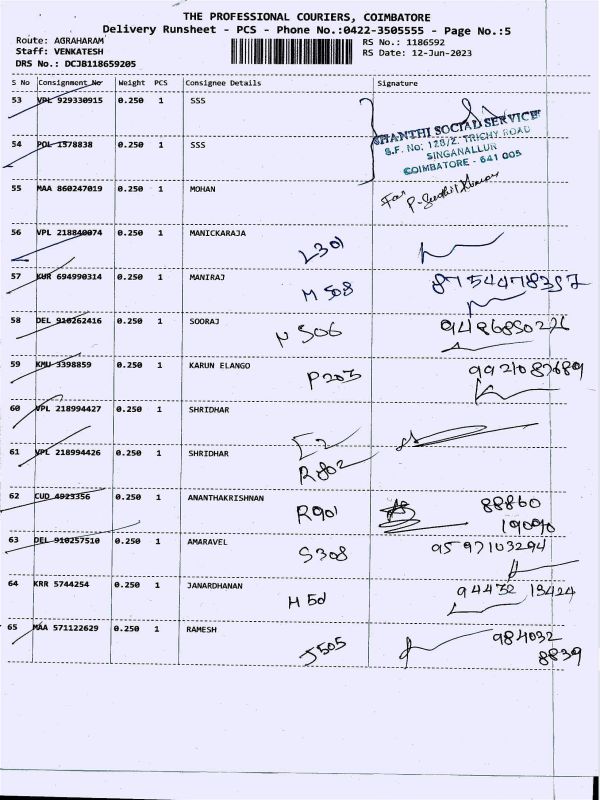 THE PROFESSIONAL COURIERS, COIMBATORE
Delivery Runsheet - PCS - Phone No.:0422-3505555 - Page No.:5
Route: AGRAHARAM
RS No.: 1186592
Staff: VENKATESH
RS Date: 12-Jun-2023
DRS No.: DCJB118659205
S No Consignment No Weight PCS Consignee Details Signature
53 VPL 929330915 0.250 1 SSS
SHANTHI SOCIAL SERVICE
S.F. No: 128/2, TRICHY ROAD
SINGANALLUR
COIMBATORE - 641 005
54 POL 1378838 0.250 1 SSS
55 MAA 860247019 0.250 1 MOHAN
For
56 VPL 218840074 0.250 1 MANICKARAJA L301
57 KUR 694990314 0.250 1 MANIRAJ M 508 8754478357
58 DEL 910262416 0.250 1 SOORAJ N 506
59 KMU 3398859 0.250 1 KARUN ELANGO P203 9921087689
60 VPL 218994427 0.250 1 SHRIDHAR
61 VPL 218994426 0.250 1 SHRIDHAR E2
R802
62 CUD 4923356 0.250 1 ANANTHAKRISHNAN R901 88860
19090
63 DEL 910257510 0.250 1 AMARAVEL S308 9597103294
64 KRR 5744254 0.250 1 JANARDHANAN 94432 13424
65 MAA 571122629 0.250 1 RAMESH J505 984032
8839